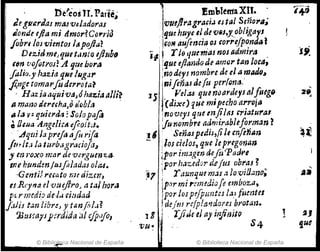 De'cos II. Parte,
de guardas mas veladoras
donde està mi Amor? Corriò
sobre los vientos la posta?
Dezidme, que tanto está
con vosotros? A que hora
salio, y hazia que lugar
finge tomar su derrota?
Hazia aqui va, ò hazia alli?
a mano derecha, ò dobla
a la izquierda? Solo passa
ò lleua Angelica escolta.
Aqui la presa a su
la turba graciosa,
y en roxo mar de verguença
me hunden sus saladas olas.
Gentil recato me dizen,
es Reyna el vuestro, a tal hora
por medio de la ciudad
salis tan libre, y tan sola?
Buscays perdida al esposo,
vu-
Emblema XII.
vuestra gracia es tal Señora,
que huye el de vos, y obligays
con ausencia os corresponda?
Y lo que mas nos admira
que estando de amor tan loca,
no deys nombre de el amado,
ni señas de su persona.
Velas que no ardeys al fuego
(dixe) que mi pecho arroja
no veys que en solas criaturas
su nombre admirable forman?
Señas pedis, si le enseñan
los cielos, que le pregonan
por imagen de su Padre
por hazedor de sus obras?
Y aunque mas a lo villano,
por mi remedio se emboza,
por los pespuntes las fuentes
de sus resplandores brotan.
Y si de el ay infinito
S4
que
15
16
17
18
19
20
21
22
23
© Biblioteca Nacional de España
© Biblioteca Nacional de España